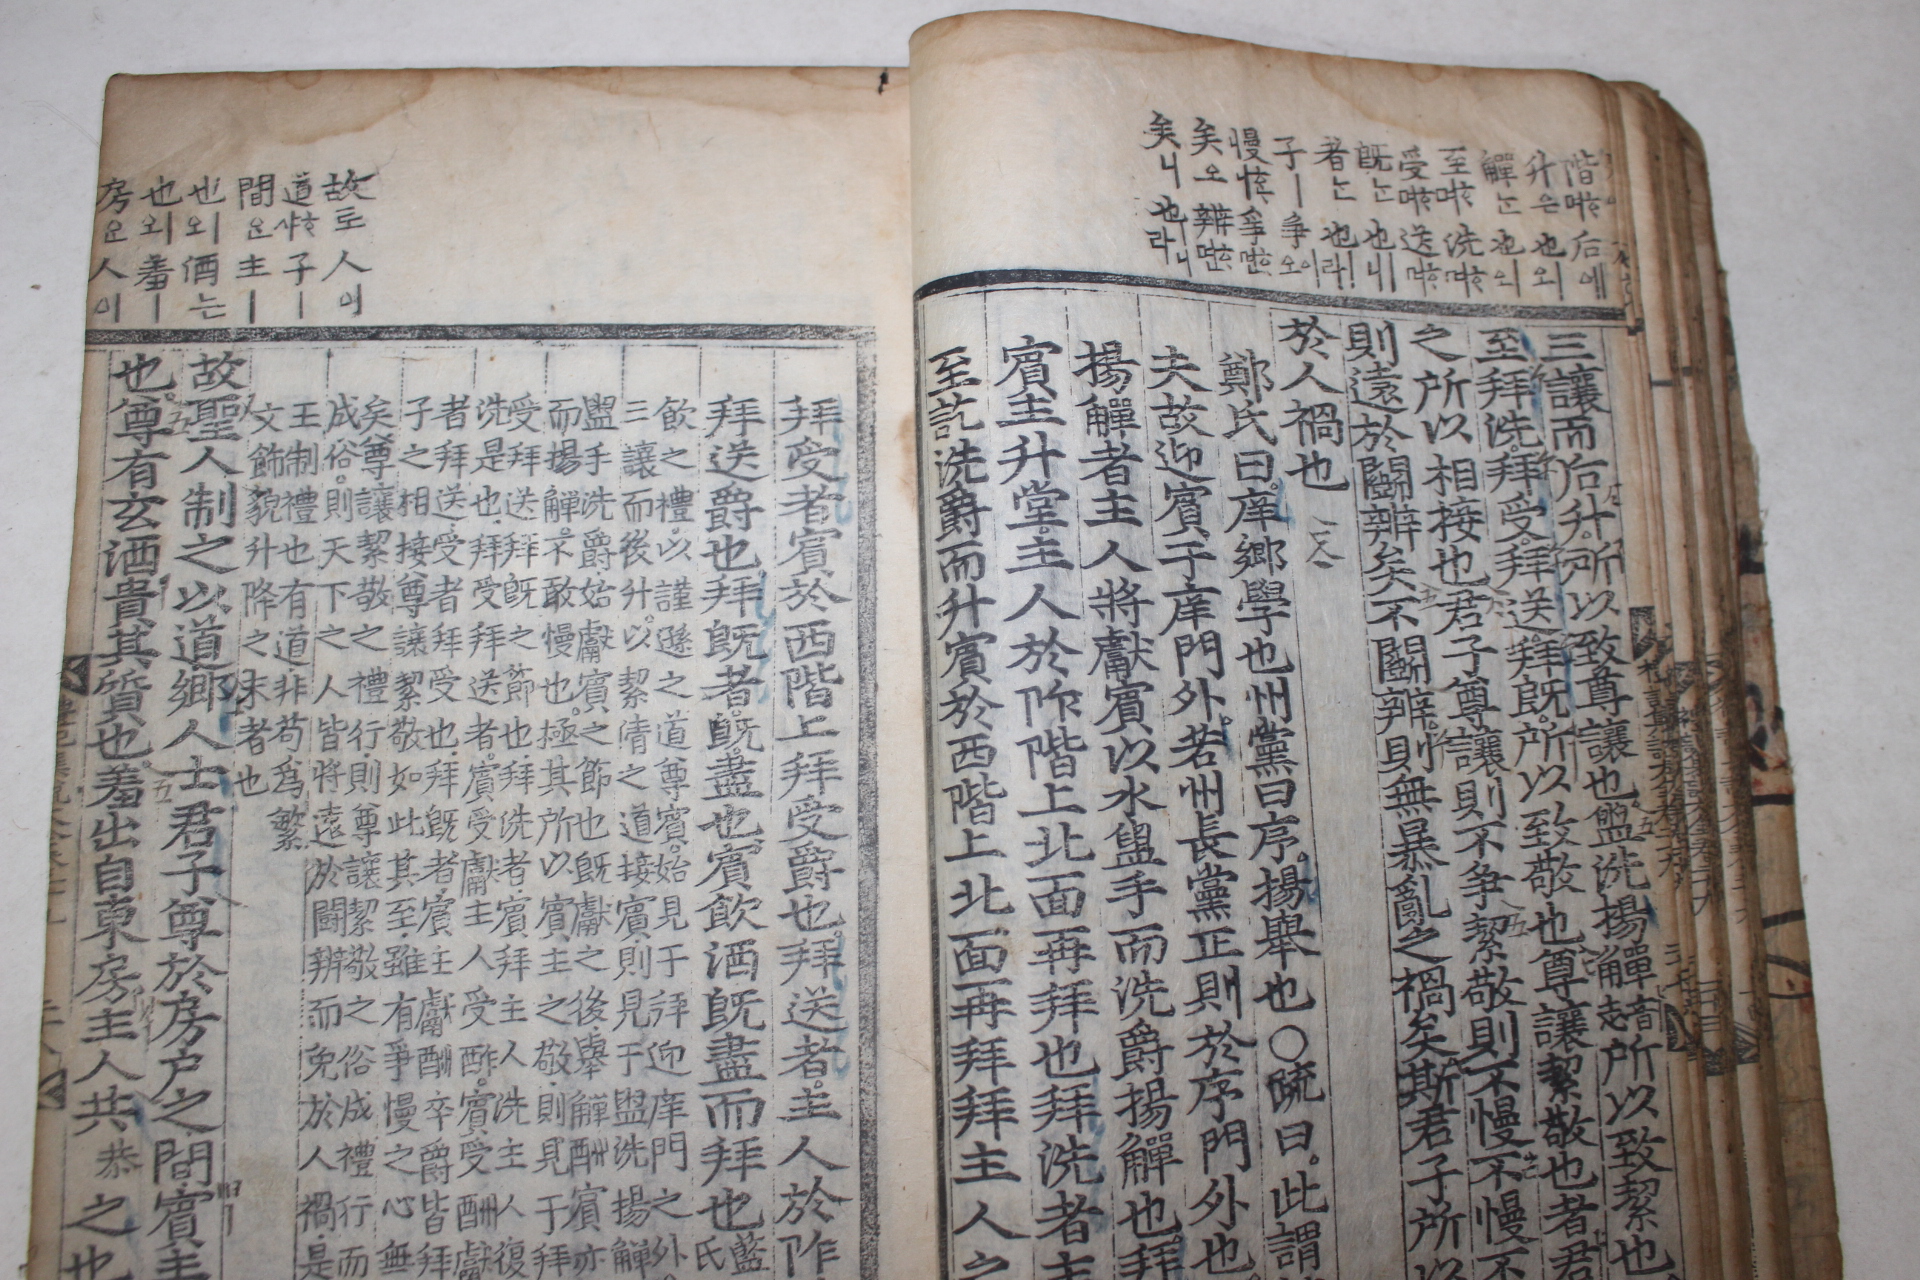 三讓而后升所以致尊讓也盥洗揚觶音志所以致絜也
至拜洗拜受拜送拜旣所以致敬也尊讓絜敬也者君
之所以相接也君子尊讓則不爭絜敬則不慢不慢不
則遠於鬪辨矣不鬪辨則無暴亂之禍矣斯君子所以
於人禍也
鄭氏曰庠鄕學也州黨曰序揚擧也○疏曰此謂
夫故迎賓于庠門外若州長黨正則於序門外也
揚觶者主人將獻賓以水盥手而洗爵揚觶也拜
賓主升堂主人於阼階上北面再拜也拜洗者主
至訖洗爵而升賓於西階上北面再拜拜主人之
拜受者賓於西階上拜受爵也拜送者主人於阼
拜送爵也拜旣者旣盡也賓飮酒旣盡而拜也藍氏
飮之禮以謹遜之道尊賓始見于拜迎庠門之外
三讓而後升以絜淸之道接賓則見于盥洗揚觶
盥手洗爵始獻賓之節也旣獻之後擧觶酬賓亦
而揚觶不敢慢也極其所以賓主之敬則見于拜
受拜送拜旣之節也拜洗者賓拜主人洗主人復
洗是也拜受拜送者賓受獻主人受酢賓受酬獻
者拜送受者拜受也拜旣者賓主獻酬卒爵皆拜
子之相接尊讓絜敬如此其至雖有爭慢之心無
矣尊讓絜敬之禮行則尊讓絜敬之俗成禮行而
成俗則天下之人皆將遠於鬪辨而免於人禍是
王制禮也有道非苟爲繁
文飾貌升降之末者也
故聖人制之以道鄕人士君子尊於房户之間賓主
也尊有玄酒貴其質也羞出自東房主人共恭之也
階㖙 后에
升은 也오ㅣ
觶는 也오ㅣ
旣는 也ㅣ니
者는 也ㅣ라
子ㅣ 爭이오
矣오 辨
矣니 也ㅣ니라
故로 人이
道 子ㅣ
間은 主ㅣ
也오ㅣ 酒는
也오ㅣ 羞ㅣ
房은 人이